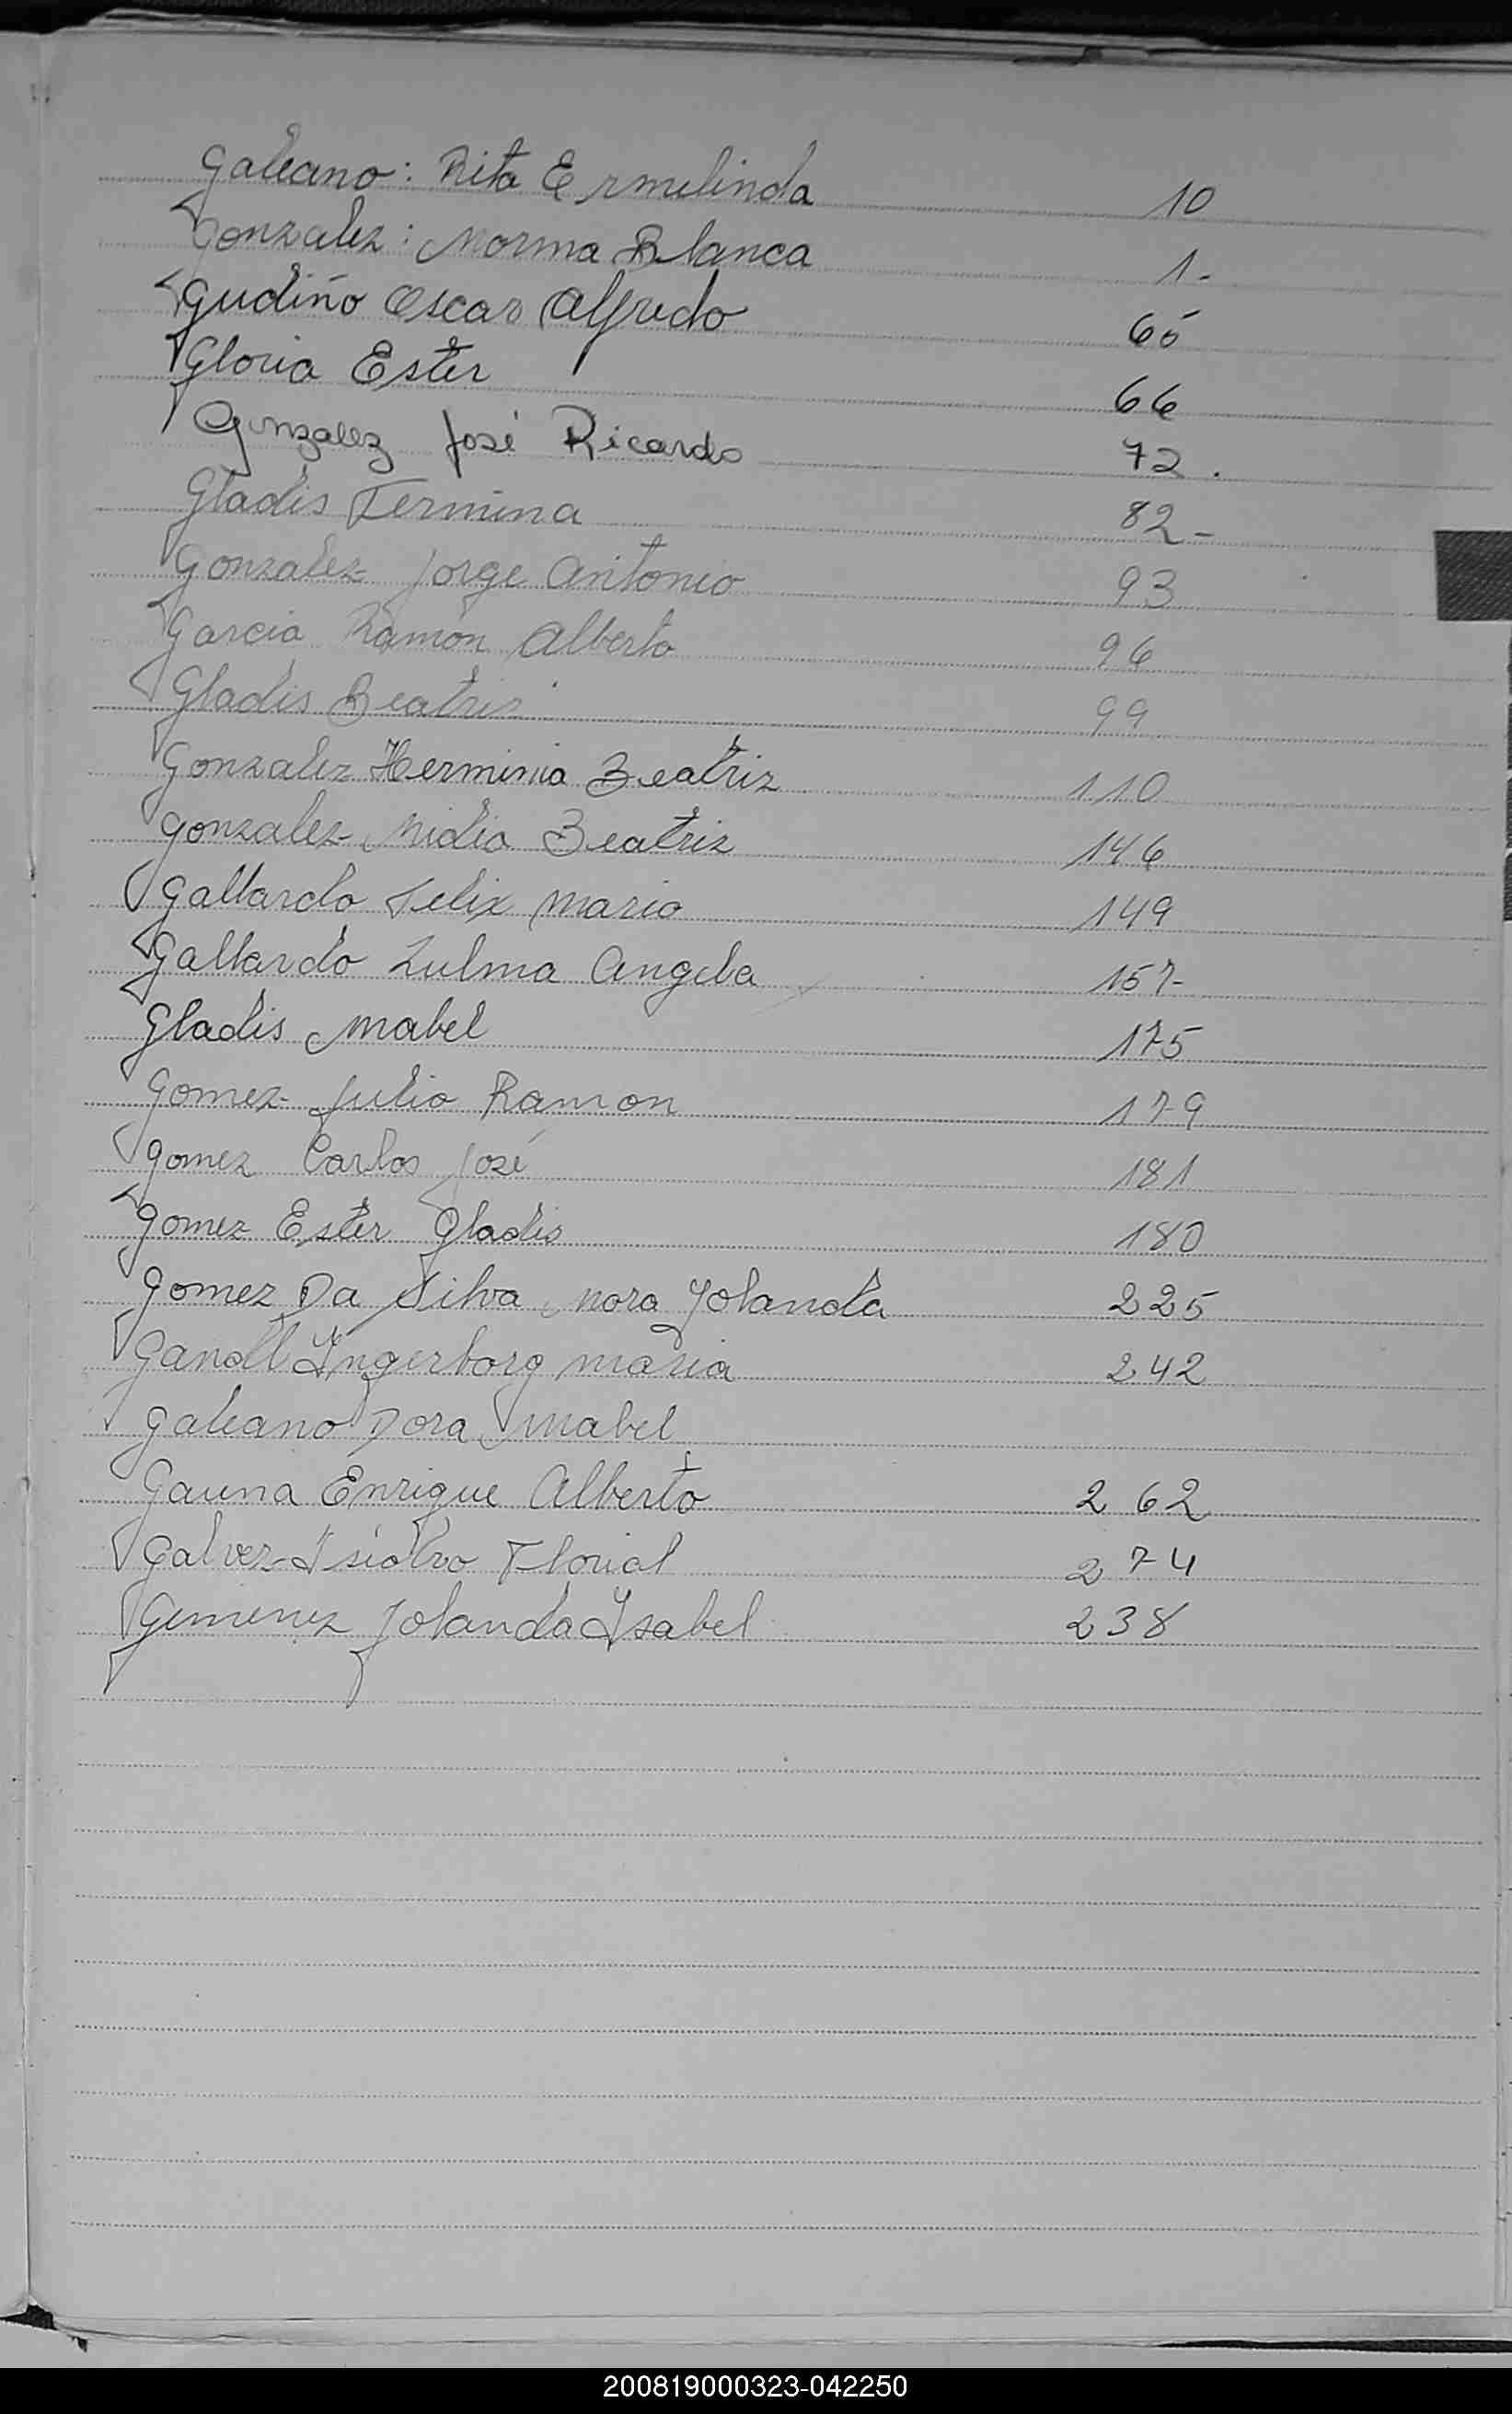 Galeano: Rita Ermelinda 10
Gonzalez: Norma Blanca 1-
Gudiño Oscar Alfredo 65
Gloria Ester 66
Gonzalez José Ricardo 72.
Gladis Fermina 82-
Gonzalez Jorge Antonio 93
Garcia Ramón Alberto 96
Gladis Beatriz 99
Gonzalez Herminia Beatriz 110
Gonzalez Nidia Beatriz 146
Gallardo Felix Mario 149
Gallardo Zulma Angela 157-
Gladis Mabel 175
Gomez Julio Ramon 179
Gomez Carlos José 181
Gomez Ester Gladis 180
Gomez Da Silva Nora Yolanda 225
Gandl Ingerborg Maria 242
Galeano Dora Mabel
Gauna Enrique Alberto 262
Galvez Isidro Florial 274
Gimenez Yolanda Ysabel 238
200819000323-042250